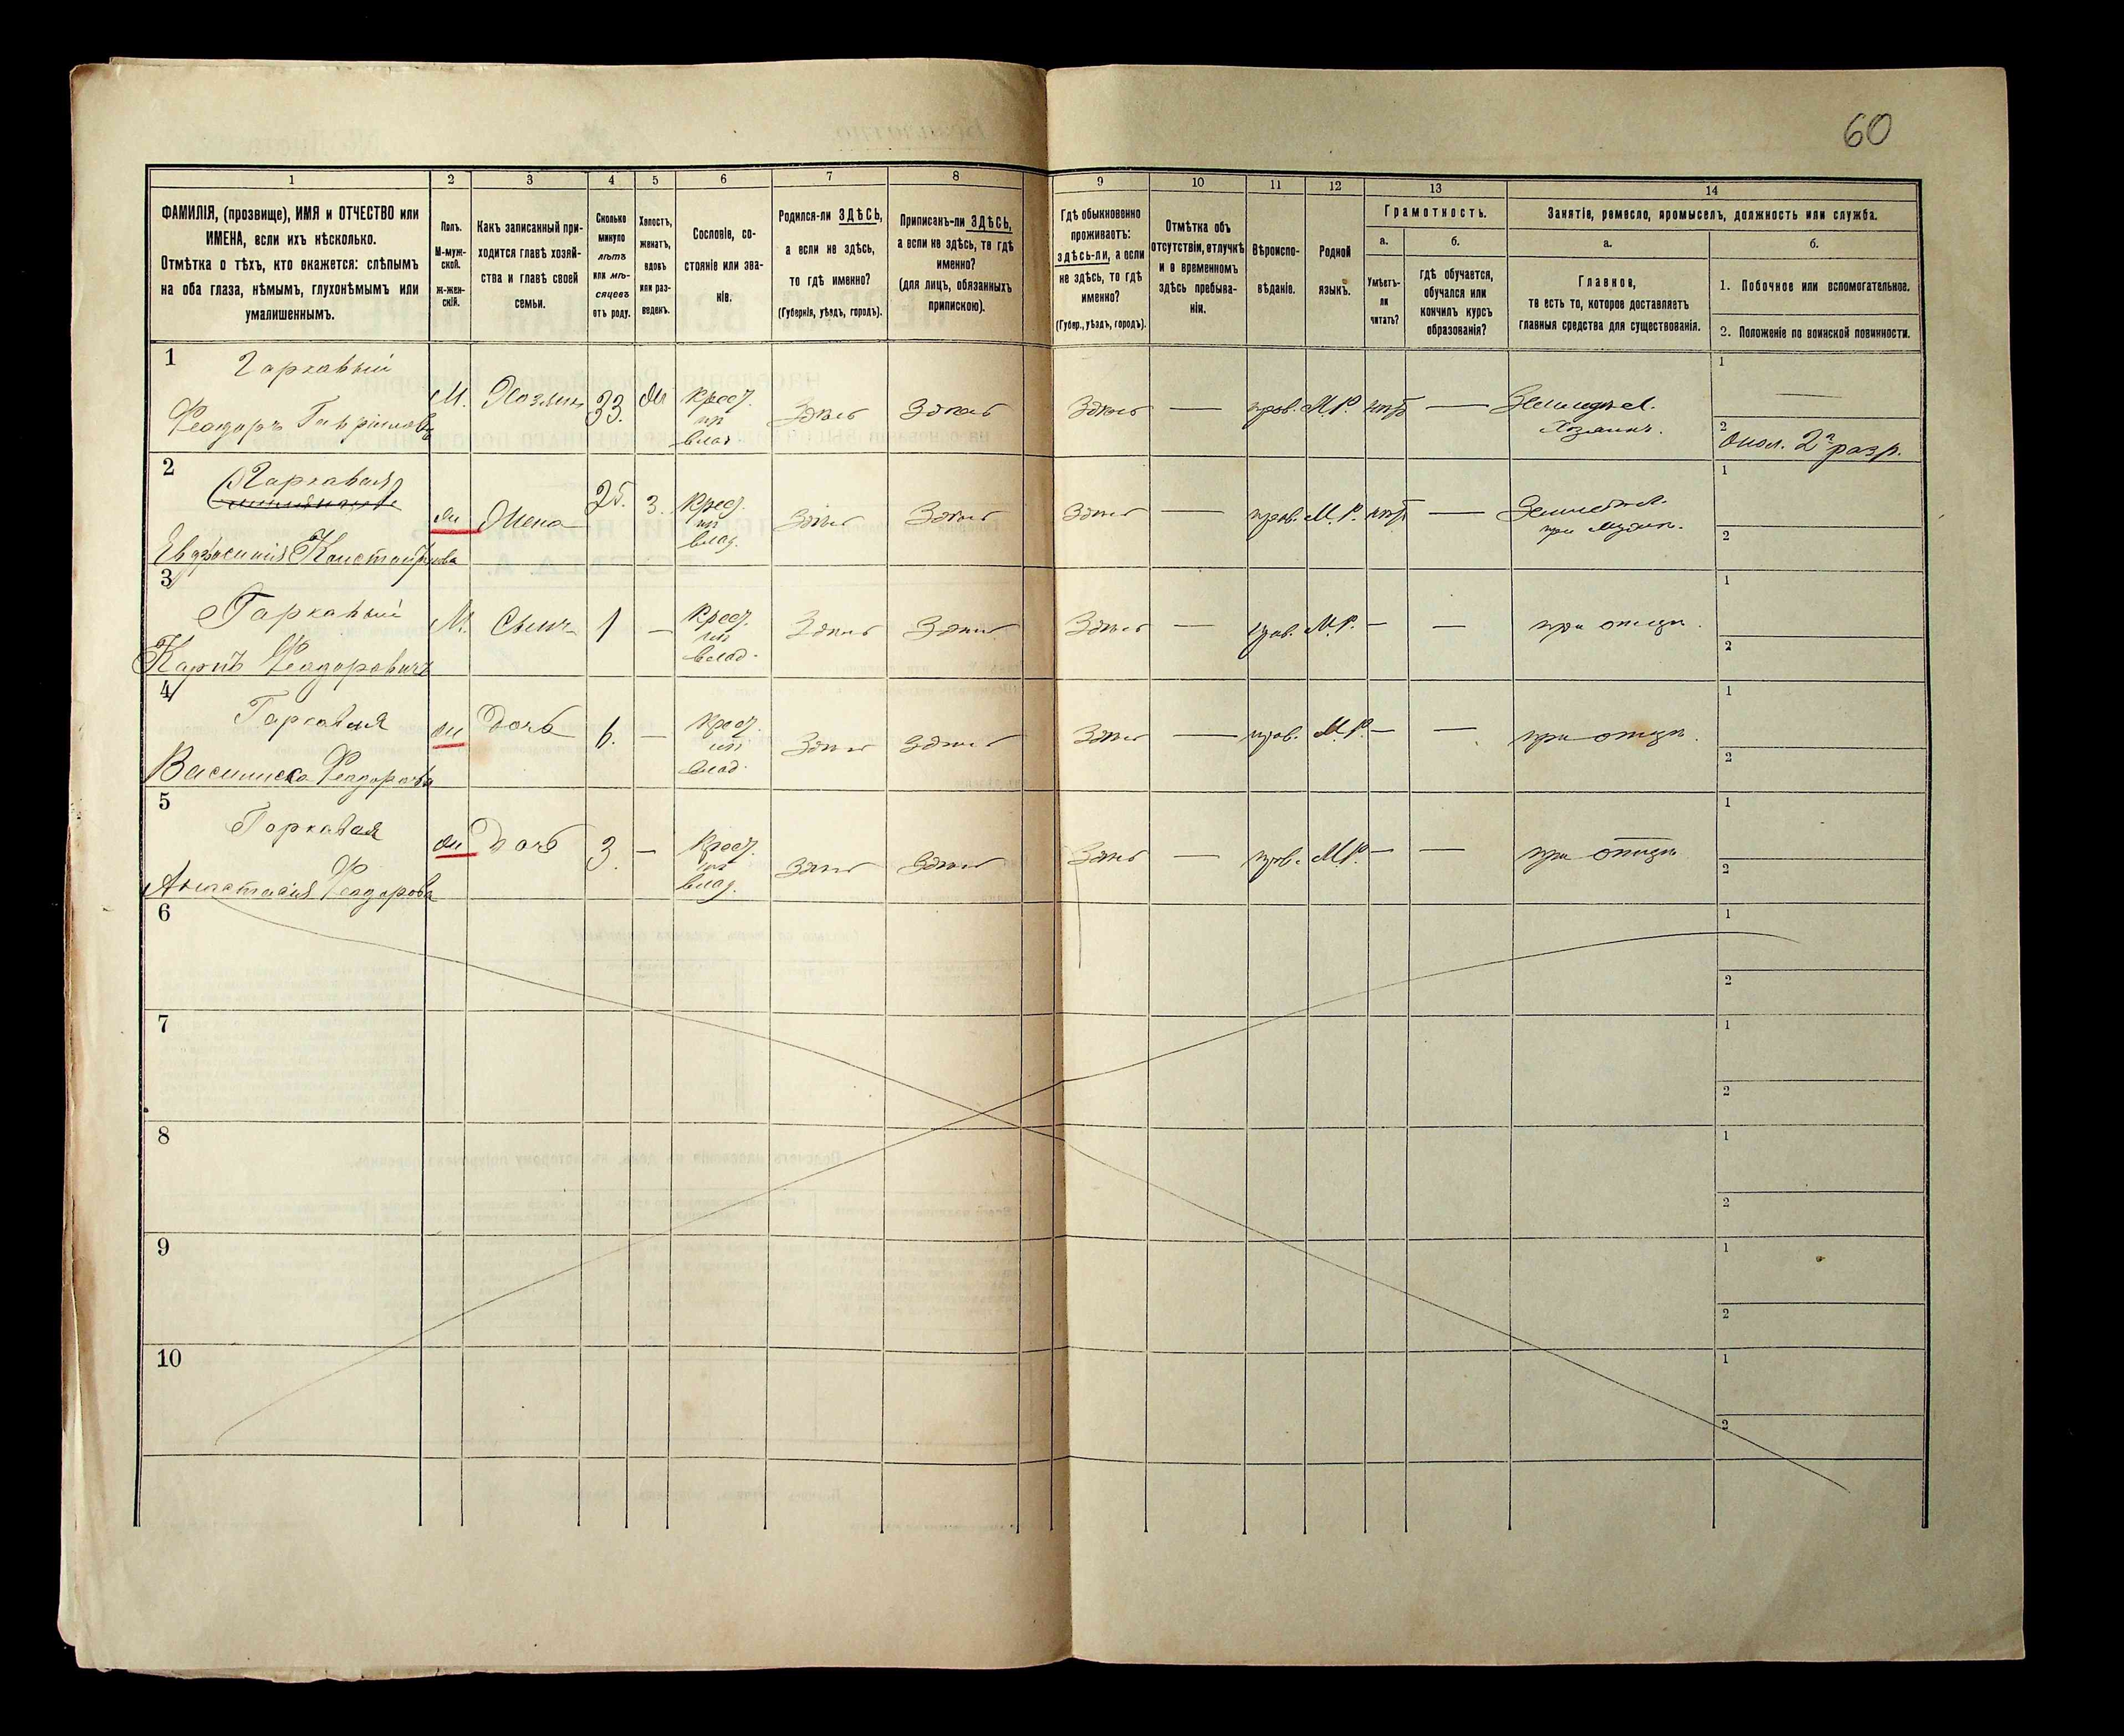 60
1
2
3
4
5
6
7
8
9
10
11
12
13
14
ФАМИЛІЯ, (прозвище), ИМЯ и ОТЧЕСТВО или
ИМЕНА, если ихъ нѣсколько.
Отмѣтка о тѣхъ, кто окажется: слѣпымъ
на оба глаза, нѣмымъ, глухонѣмымъ или
умалишеннымъ.
Полъ.
М-муж-
ской.
ж-жен-
скій.
Какъ записанный при-
ходится главѣ хозяй-
ства и главѣ своей
семьи.
Сколько
минуло
лѣтъ
или мѣ-
сяцевъ
отъ роду.
Холостъ,
женатъ,
вдовъ
или раз-
веденъ.
Сословіе, со-
стояніе или зва-
ніе.
Родился-ли ЗДѢСЬ,
а если не здѣсь,
то гдѣ именно?
(Губернія, уѣздъ, городъ).
Приписанъ-ли ЗДѢСЬ,
а если не здѣсь, то гдѣ
именно?
(для лицъ, обязанныхъ
припискою).
Гдѣ обыкновенно
проживаетъ:
здѣсь-ли, а если
не здѣсь, то гдѣ
именно?
(Губер., уѣздъ, городъ).
Отмѣтка объ
отсутствіи, отлучкѣ
и о временномъ
здѣсь пребыва-
ніи.
Вѣроиспо-
вѣданіе.
Родной
языкъ.
Грамотность.
а.
Умѣетъ-
ли
читать?
б.
гдѣ обучается,
обучался или
кончилъ курсъ
образованія?
Занятіе, ремесло, промыселъ, должность или служба.
а.
Главное,
то есть то, которое доставляетъ
главныя средства для существованія.
б.
1. Побочное или вспомогательное.
2. Положеніе по воинской повинности.
1
Гаркавый
Феодоръ Гавриловъ
М. Хозяинъ 33. ж
Крест.
из
влад.
Здѣсь Здѣсь Здѣсь — прав. М.Р. нѣтъ —
Земледѣл.
Хозяинъ.
1 —
2 Опол. 2 разр.
2
Гаркавая
Евфросинія Константинова
ж Жена 25. З.
Крест.
из
влад.
Здѣсь Здѣсь Здѣсь — прав. М.Р. нѣтъ —
Земледѣл.
при мужѣ.
1
2
3
Гаркавый
Карпъ Феодоровичъ
М. Сынъ 1 —
Крест.
из
влад.
Здѣсь Здѣсь Здѣсь — прав. М.Р. — — при отцѣ.
1
2
4
Гаркавая
Василиса Феодорова
ж Дочь 6. —
Крест.
из
влад.
Здѣсь Здѣсь Здѣсь — прав. М.Р. — — при отцѣ.
1
2
5
Гаркавая
Анастасія Феодорова
ж Дочь 3. —
Крест.
из
влад.
Здѣсь Здѣсь Здѣсь — прав. М.Р. — — при отцѣ
1
2
6
1
2
7
1
2
8
1
2
9
1
2
10
1
2